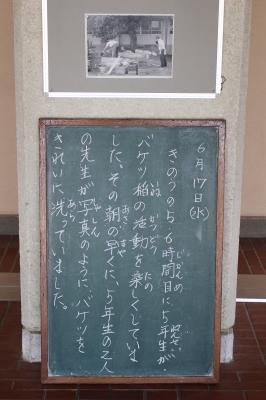 6月17日㊌
きのうの5、6時間目に、5年生が、
バケツ稲の活動を楽しくしていま
した。その朝の早くに、5年生の2人
の先生が写真のように、バケツを
きれいに洗っていました。